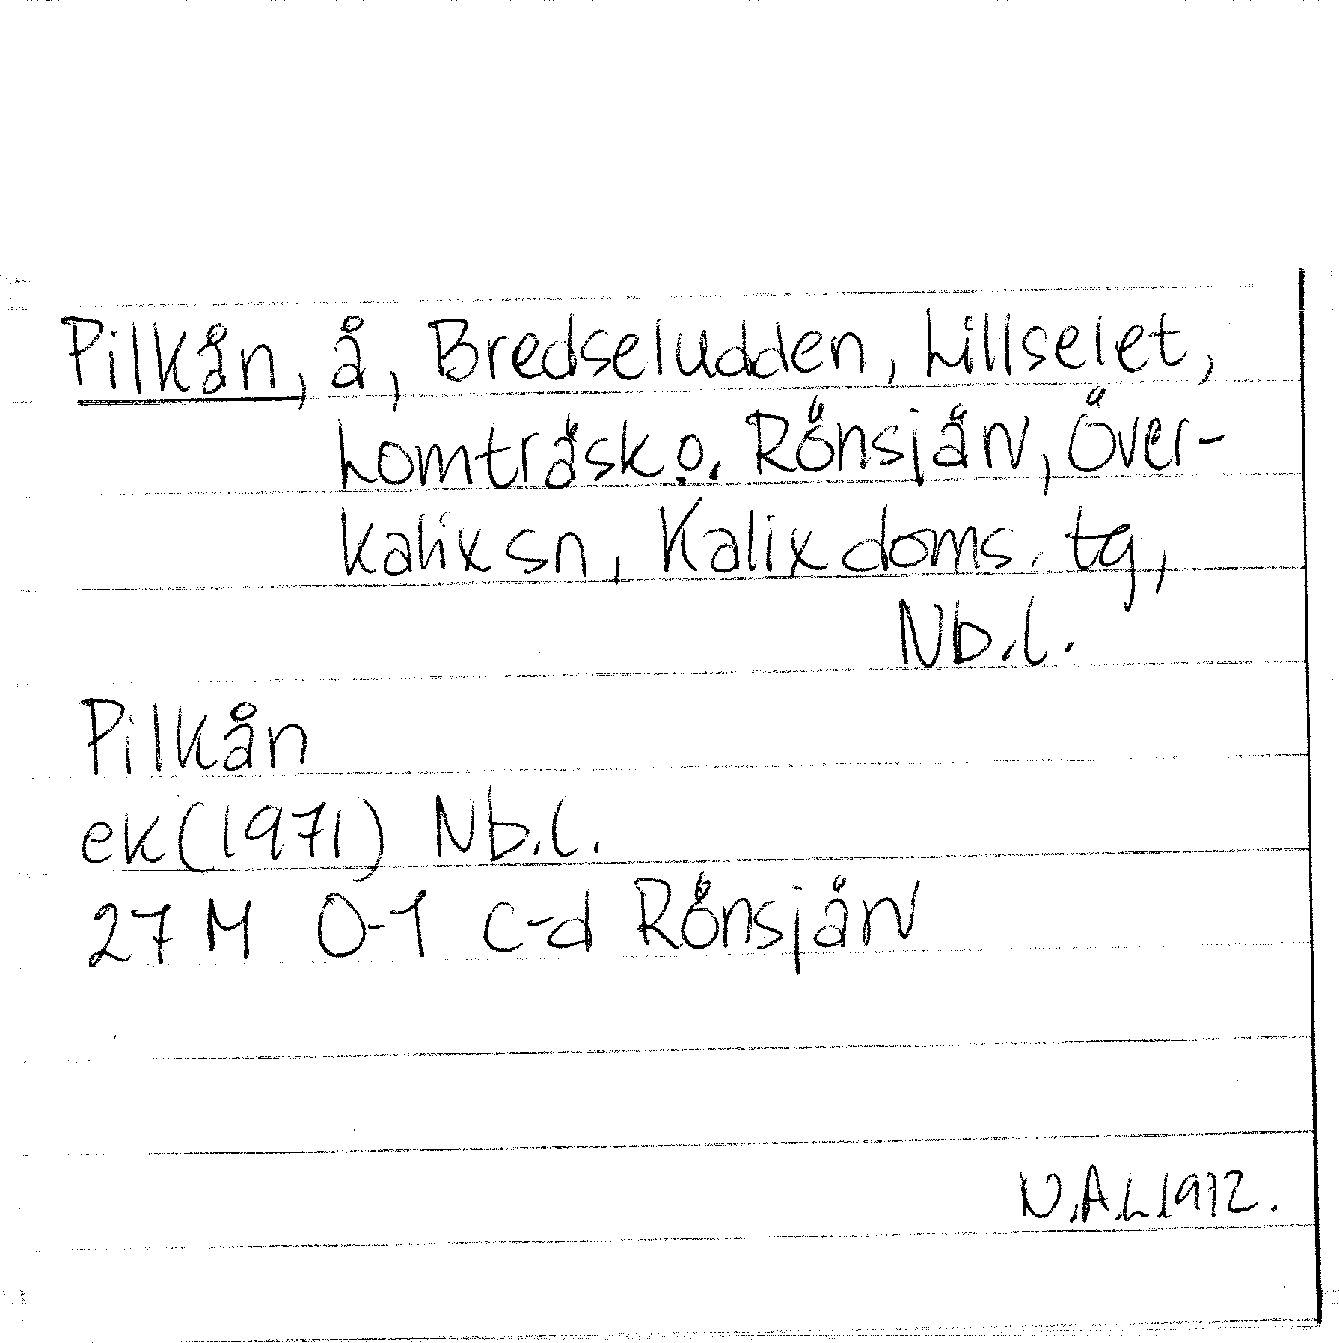 Pilkån, å, Bredseludden, Lillselet,
Lomträsk o. Rönsjärv, Över-
kalix sn, Kalix doms. tg,
Nb.l.
Pilkån
ek (1971) Nb.l.
27 M 0-1 c-d Rönsjärv
N.A.L 1972.